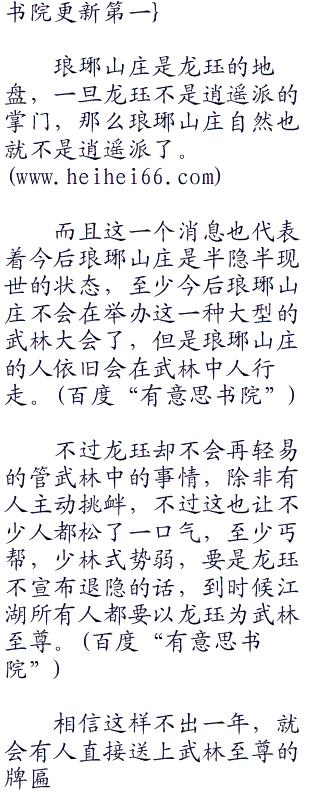 书院更新第一}
琅琊山庄是龙珏的地
盘，一旦龙珏不是逍遥派的
掌门，那么琅琊山庄自然也
就不是逍遥派了。
(www.heihei66.com)
而且这一个消息也代表
着今后琅琊山庄是半隐半现
世的状态，至少今后琅琊山
庄不会在举办这一种大型的
武林大会了，但是琅琊山庄
的人依旧会在武林中人行
走。(百度“有意思书院”)
不过龙珏却不会再轻易
的管武林中的事情，除非有
人主动挑衅，不过这也让不
少人都松了一口气，至少丐
帮，少林式势弱，要是龙珏
不宣布退隐的话，到时候江
湖所有人都要以龙珏为武林
至尊。(百度“有意思书
院”)
相信这样不出一年，就
会有人直接送上武林至尊的
牌匾